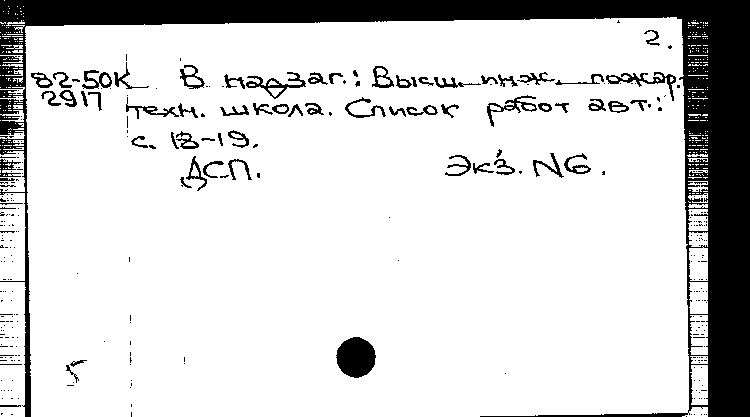 2.
82-50к В надзаг.: Высш. инж. пожар.-
2917 техн. школа. Список работ авт.:
с. 18-19.
ДСП. Экз. N6.
5